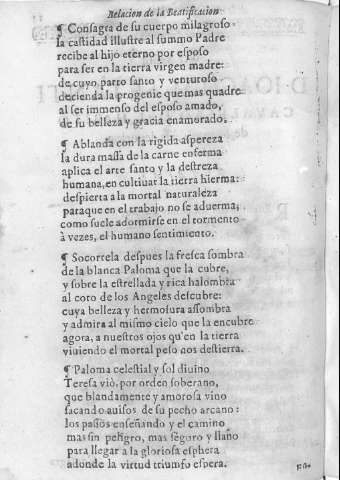 Relacion de la Beatificacion
¶ Consagra de su cuerpo milagroso
la castidad illustre al summo Padre
recibe al hijo eterno por esposo
para ser en la tierra virgen madre:
de cuyo parto santo y venturoso
decienda la progenie que mas quadre
al ser immenso del esposo amado,
de su belleza y gracia enamorado.
¶ Ablanda con la rigida aspereza
la dura massa de la carne enferma
aplica el arte santo y la destreza
humana, en cultiuar la tierra hierma:
despierta a la mortal naturaleza
paraque en el trabajo no se aduerma,
como suele adormirse en el tormento
à vezes, el humano sentimiento.
¶ Socorrela despues la fresca sombra
de la blanca Paloma que la cubre,
y sobre la estrellada y rica halombra
al coro de los Angeles descubre:
cuya belleza y hermosura assombra
y admira al mismo cielo que la encubre
agora, a nuestros ojos qu'en la tierra
viuiendo el mortal peso nos destierra.
¶ Paloma celestial y sol diuino
Teresa viò, por orden soberano,
que blandamente y amorosa vino
sacando auisos de su pecho arcano:
los passos enseñando y el camino
mas sin peligro, mas seguro y llano
para llegar a la gloriosa esphera
adonde la virtud triumfo espera.